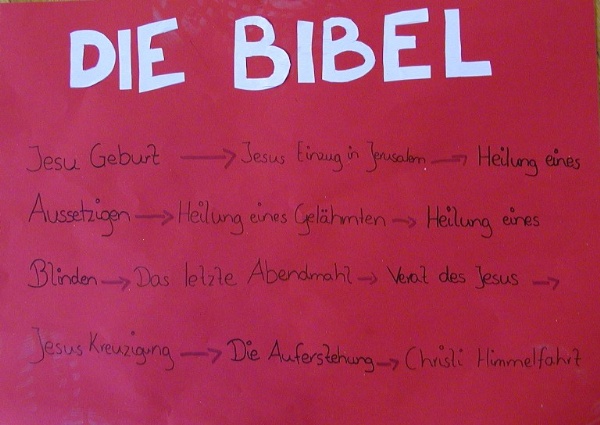 DIE BIBEL
Jesu Geburt → Jesus Einzug in Jerusalem → Heilung eines
Aussetzigen → Heilung eines Gelähmten → Heilung eines
Blinden → Das letzte Abendmahl → Verat des Jesus →
Jesus Kreuzigung → Die Auferstehung → Christi Himmelfahrt